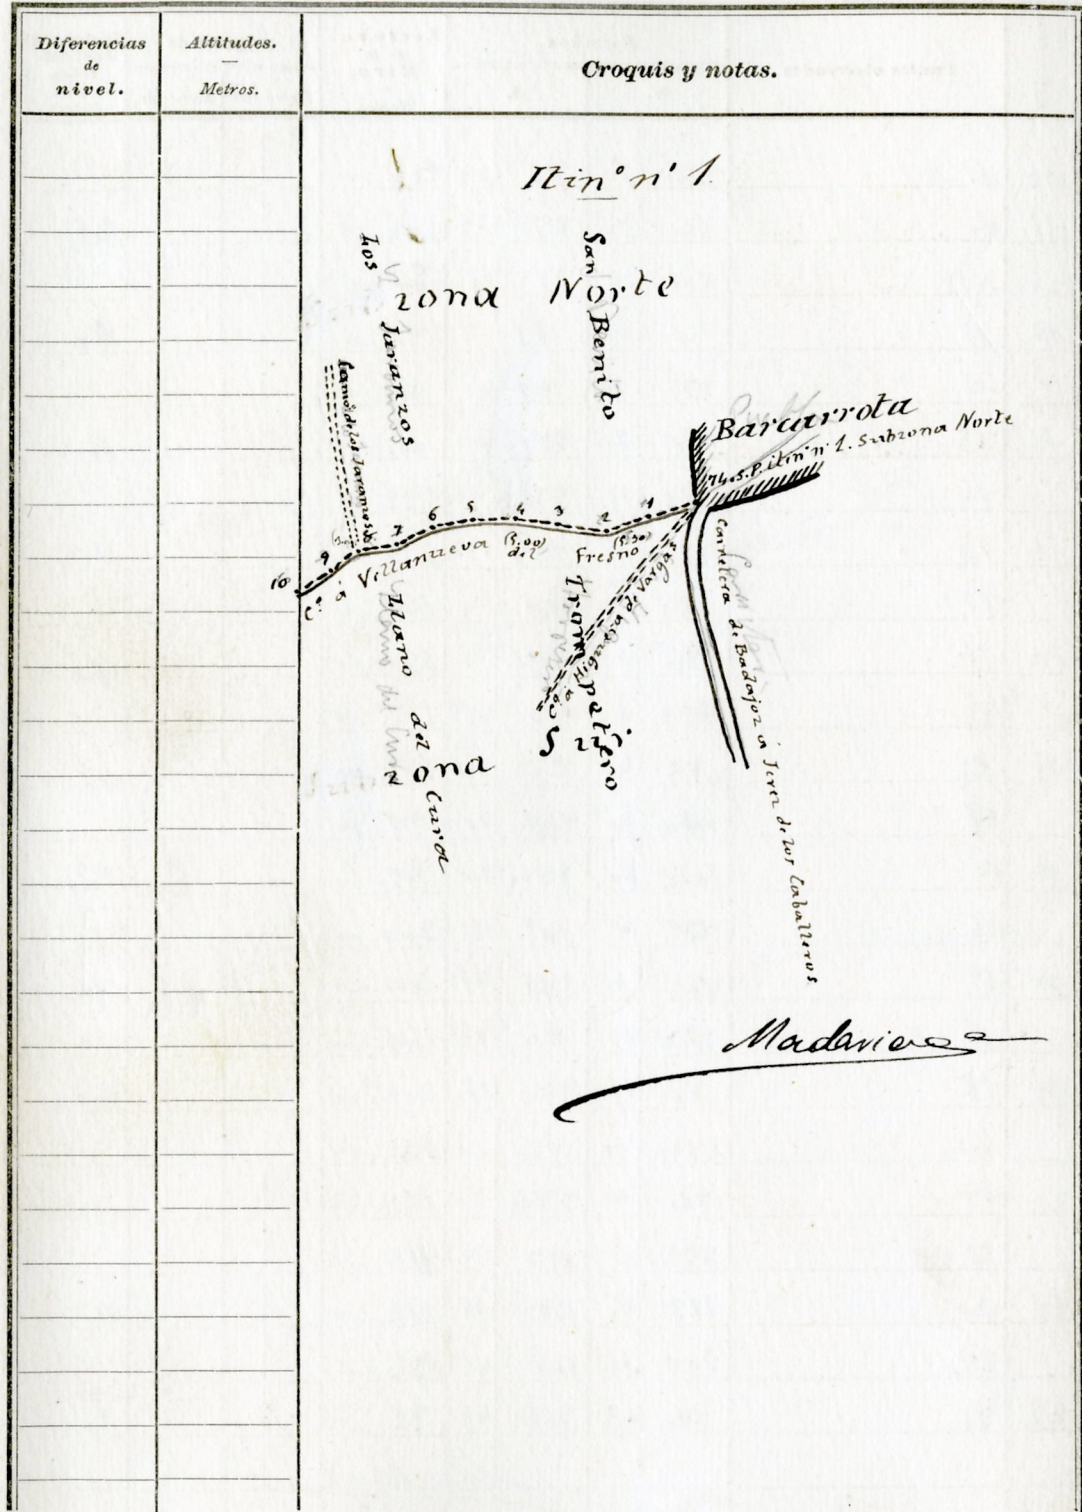 Diferencias
de
nivel.
Altitudes.
Metros.
Croquis y notas.
Itinº nº 1.
Los Jaranzos
San Benito
zona Norte
Barcarrota
74.S.P. itinº nº 1. Subzona Norte
Camº de los Jaranzos
10 9 8 7 6 5 4 3 2 1
Cº á Villanueva del Fresno
(5,00)
(5,50)
Trompetero
Cº á Higuera de Vargas
Carretera de Badajoz á Jerez de los Caballeros
Llano del Cura
zona Sur
Madariaga